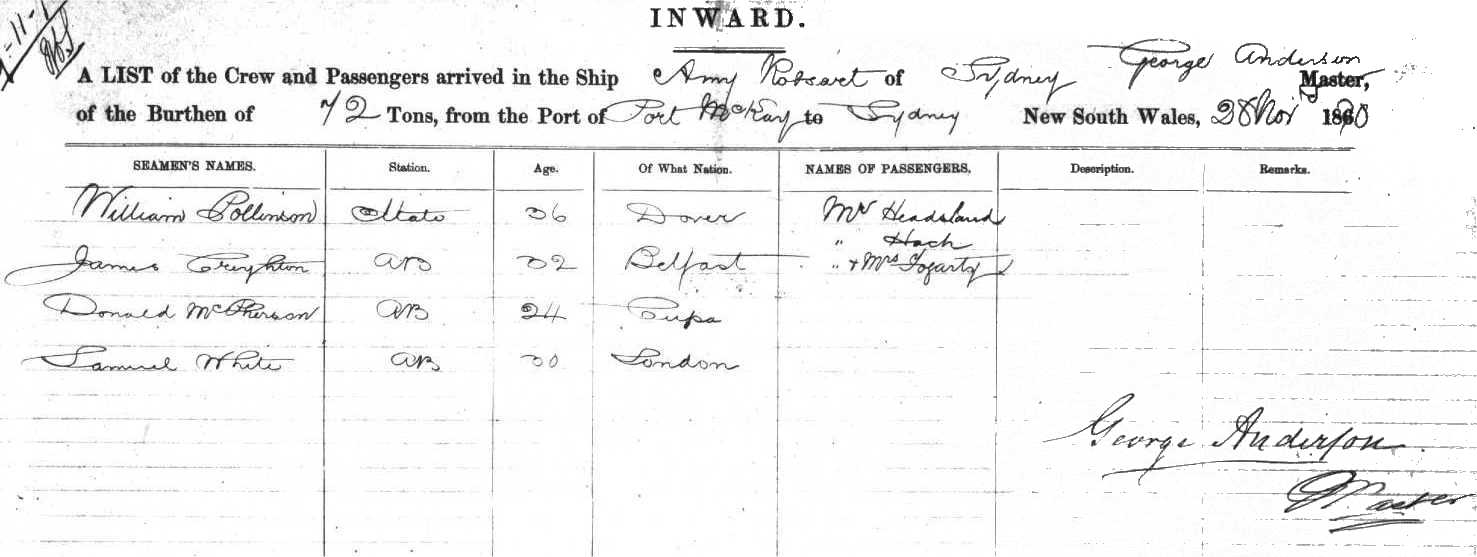 INWARD.
A LIST of the Crew and Passengers arrived in the Ship Amy Robsart of Sydney George Anderson Master,
of the Burthen of 72 Tons, from the Port of Port McKay to Sydney New South Wales, 28 Nov 1870
SEAMEN'S NAMES. Station. Age. Of What Nation. NAMES OF PASSENGERS, Description. Remarks.
William Collinson Mate 36 Dover Mr Headsland
" Hach
James Creighton AB 32 Belfast " + Mrs Fogarty
Donald McPherson AB 24 Cupa
Samuel White AB 30 London
George Anderson
Master